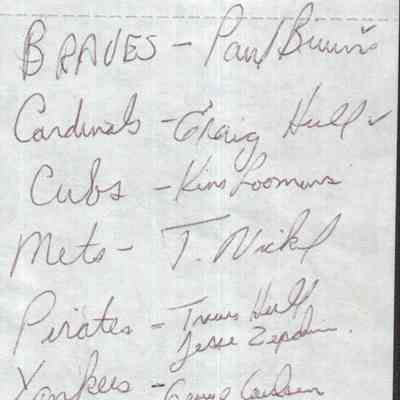 BRAVES - Paul
Cardinals - Craig Hull ✓
Cubs - Kim Loomans
Mets - T. Nickl
Pirates - Travis Hull
Jesse
Yankees -